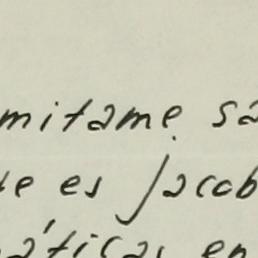 mitame sa
e es Jacob
áticas en